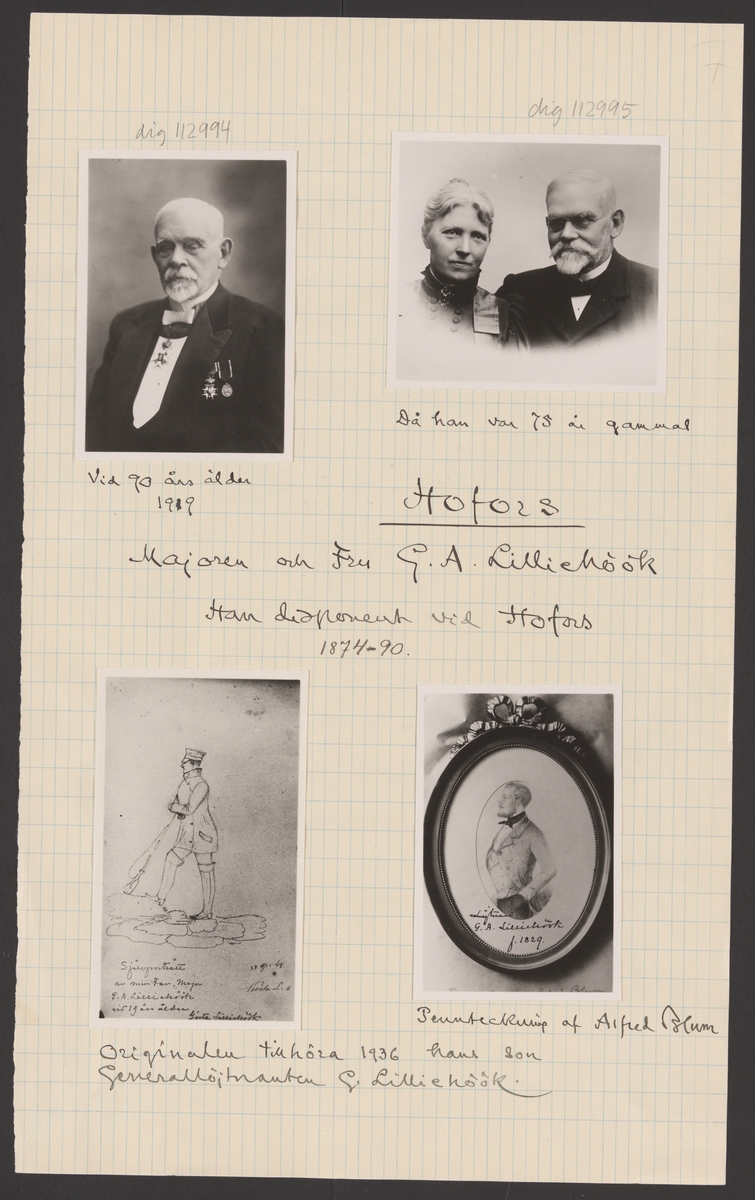 dig 112994
dig 112995
Då han var 75 år gammal
Vid 90 års ålder
1919
Hofors
Majoren och Fru G. A. Lilliehöök
Han disponent vid Hofors
1874-90.
Självporträtt
av min Far, Major
G. A. Lilliehöök
vid 19 års ålder.
Gösta Lilliehöök
Löjtnant
G. A. Lilliehöök
f. 1829.
Pennteckning af Alfred Blum
Originalen tillhöra 1936 hans son
Generallöjtnanten G. Lilliehöök.